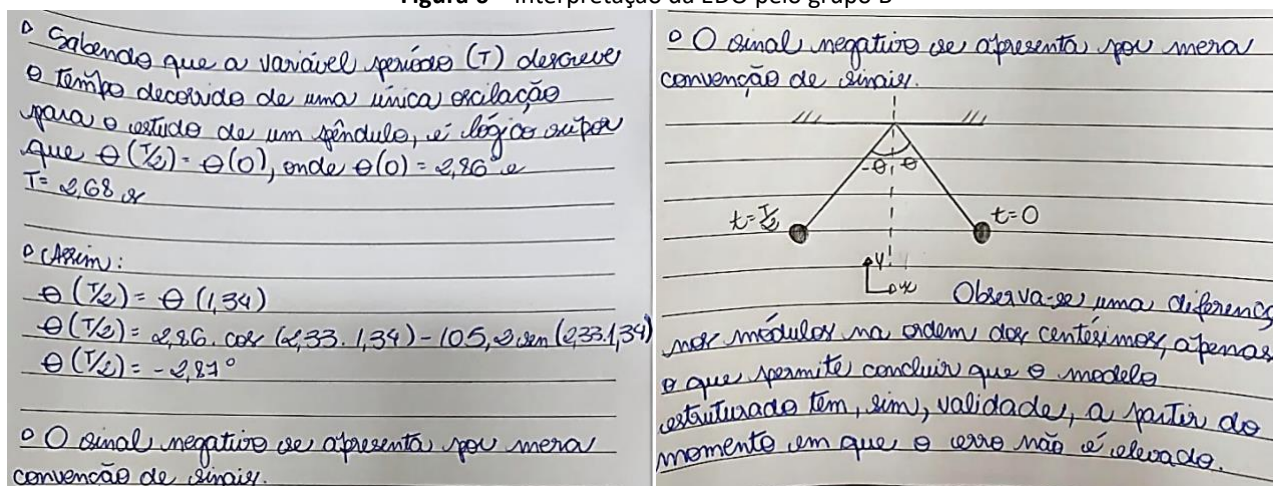 Figura 6 – Interpretação da EDO pelo grupo B
Sabendo que a variável período (T) descreve
o tempo decorrido de uma única oscilação
para o estudo de um pêndulo, é lógico supor
que θ(T/2) = θ(0), onde θ(0) = 2,86° e
T = 2,68 s
Assim:
θ(T/2) = θ(1,34)
θ(T/2) = 2,86. cos (2,33. 1,34) - 105,2 sen (2,33.1,34)
θ(T/2) = -2,87°
O sinal negativo se apresenta por mera
convenção de sinais.
O sinal negativo se apresenta por mera
convenção de sinais.
-θ θ
t=T/2
t=0
y
x
Observa-se uma diferença
nos módulos na ordem dos centésimos, apenas
o que permite concluir que o modelo
estruturado tem, sim, validade, a partir do
momento em que o erro não é elevado.